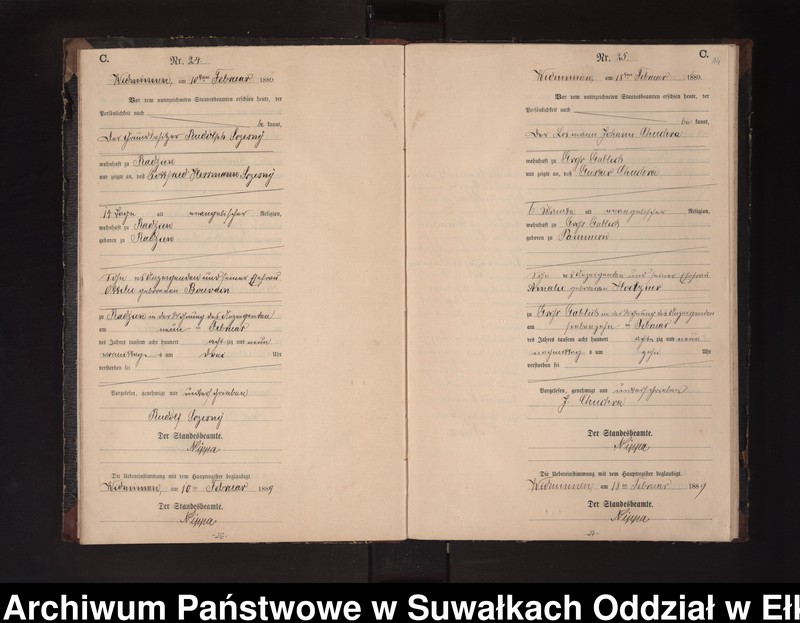 C.
Nr. 24.
Widminnen, am 10ten Februar 1889.
Vor dem unterzeichneten Standesbeamten erschien heute, der
Persönlichkeit nach
be kannt,
der Grundbesitzer Rudolph
wohnhaft zu Radzien
und zeigte an, daß Gottfried Herrmann
19 Tage alt evangelischer Religion,
wohnhaft zu Radzien
geboren zu Radzien
Sohn des Anzeigenden und seiner Ehefrau
Ottilie geborenen
zu Radzien in der Wohnung des Anzeigenden
am neun ten Februar
des Jahres tausend acht hundert acht zig und neun
vormittags um drei Uhr
verstorben sei
Vorgelesen, genehmigt und unterschrieben
Rudolf
Der Standesbeamte.
Nippa
Die Uebereinstimmung mit dem Hauptregister beglaubigt.
Widminnen, am 10ten Februar 1889
Der Standesbeamte.
Nippa
C.
Nr. 25.
Widminnen, am 18ten Februar 1889.
Vor dem unterzeichneten Standesbeamten erschien heute, der
Persönlichkeit nach
be kannt,
Der Losmann Johann
wohnhaft zu Groß Gablick
und zeigte an, daß Gustav
6 Monate alt evangelischer Religion,
wohnhaft zu Groß Gablick
geboren zu
Sohn des Anzeigenden und seiner Ehefrau
Amalie geborenen
zu Groß Gablick in der Wohnung des Anzeigenden
am siebenzehn ten Februar
des Jahres tausend acht hundert acht zig und neun
nachmittags um zehn Uhr
verstorben sei
Vorgelesen, genehmigt und unterschrieben
J.
Der Standesbeamte.
Nippa
Die Uebereinstimmung mit dem Hauptregister beglaubigt.
Widminnen, am 18ten Februar 1889
Der Standesbeamte.
Nippa
Archiwum Państwowe w Suwałkach Oddział w Ełk